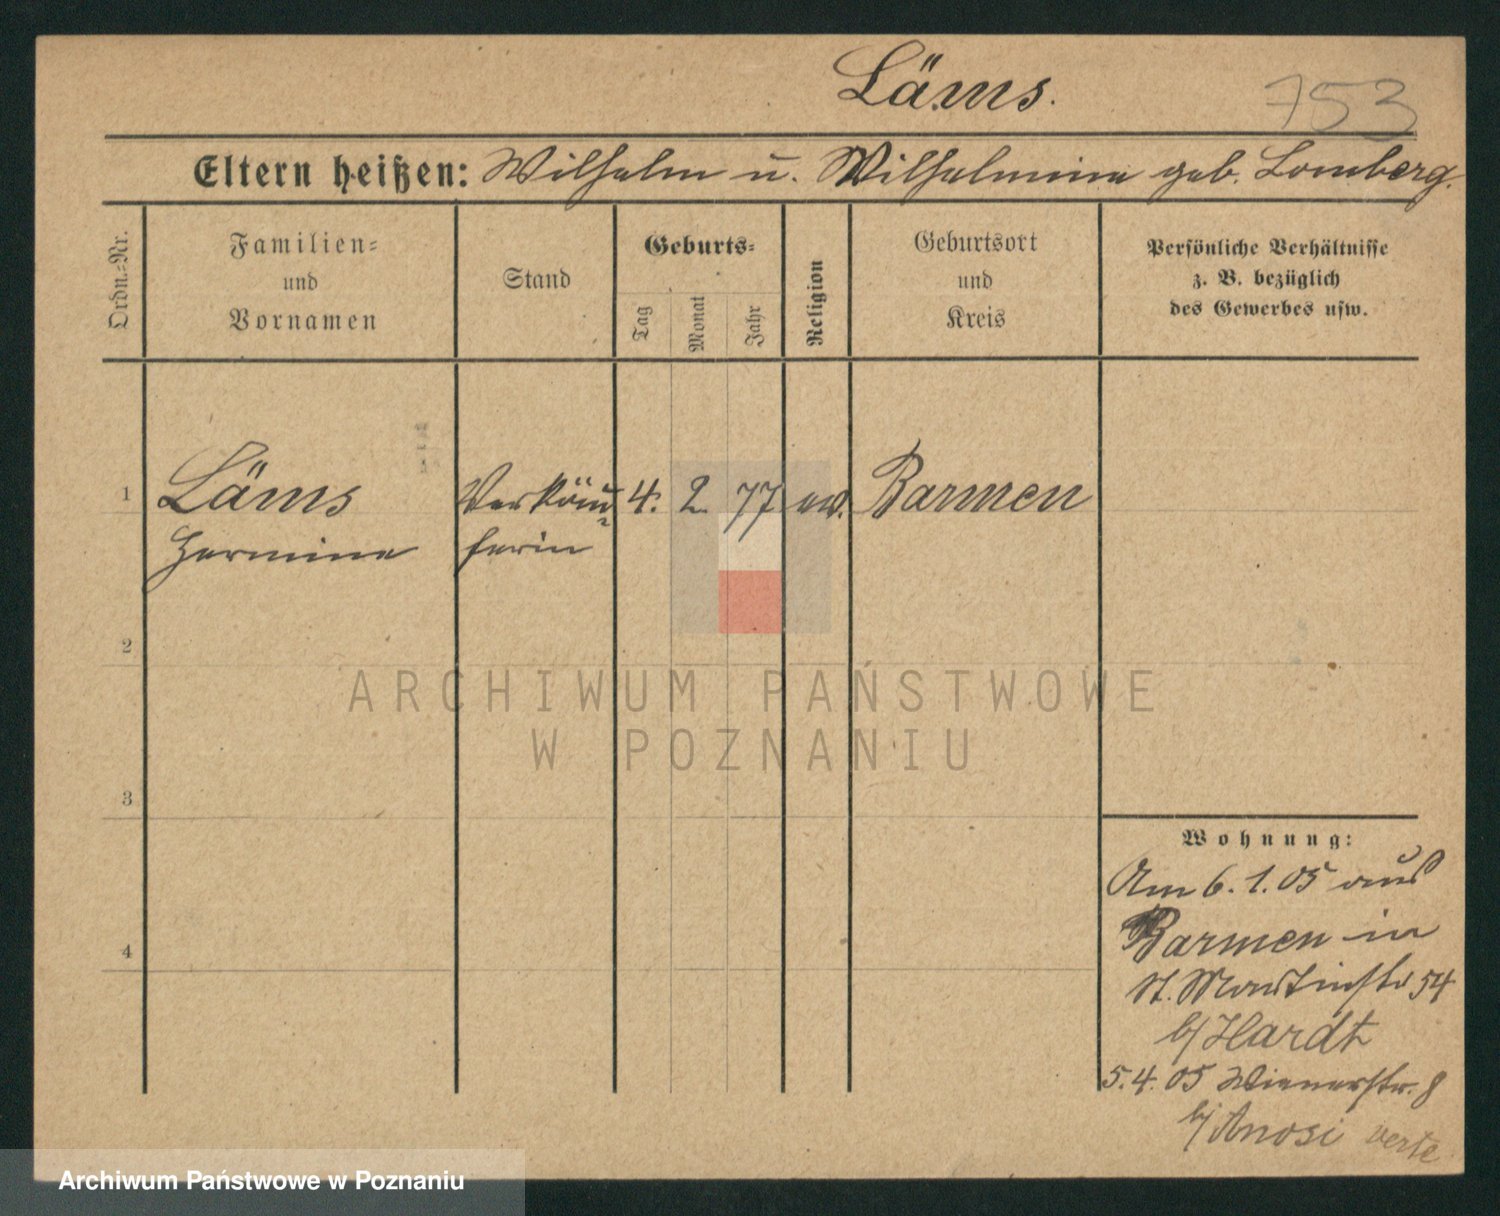 Läms.
753
Eltern heißen: Wilhelm u. Wilhelmine geb. Lomberg.
Ordn.=Nr.
Familien=
und
Vornamen
Stand
Geburts=
Tag
Monat
Jahr
Religion
Geburtsort
und
Kreis
Persönliche Verhältnisse
z. B. bezüglich
des Gewerbes usw.
1 Läms Verkäu= 4. 2. 77 ev. Barmen
Hermine ferin
2
3
4
Wohnung:
Am 6.1.05 aus
Barmen in
St. Martinstr 54
b/ Hardt
5.4.05 Wienerstr. 8
b/ Anosi verte
ARCHIWUM PAŃSTWOWE
W POZNANIU
Archiwum Państwowe w Poznaniu